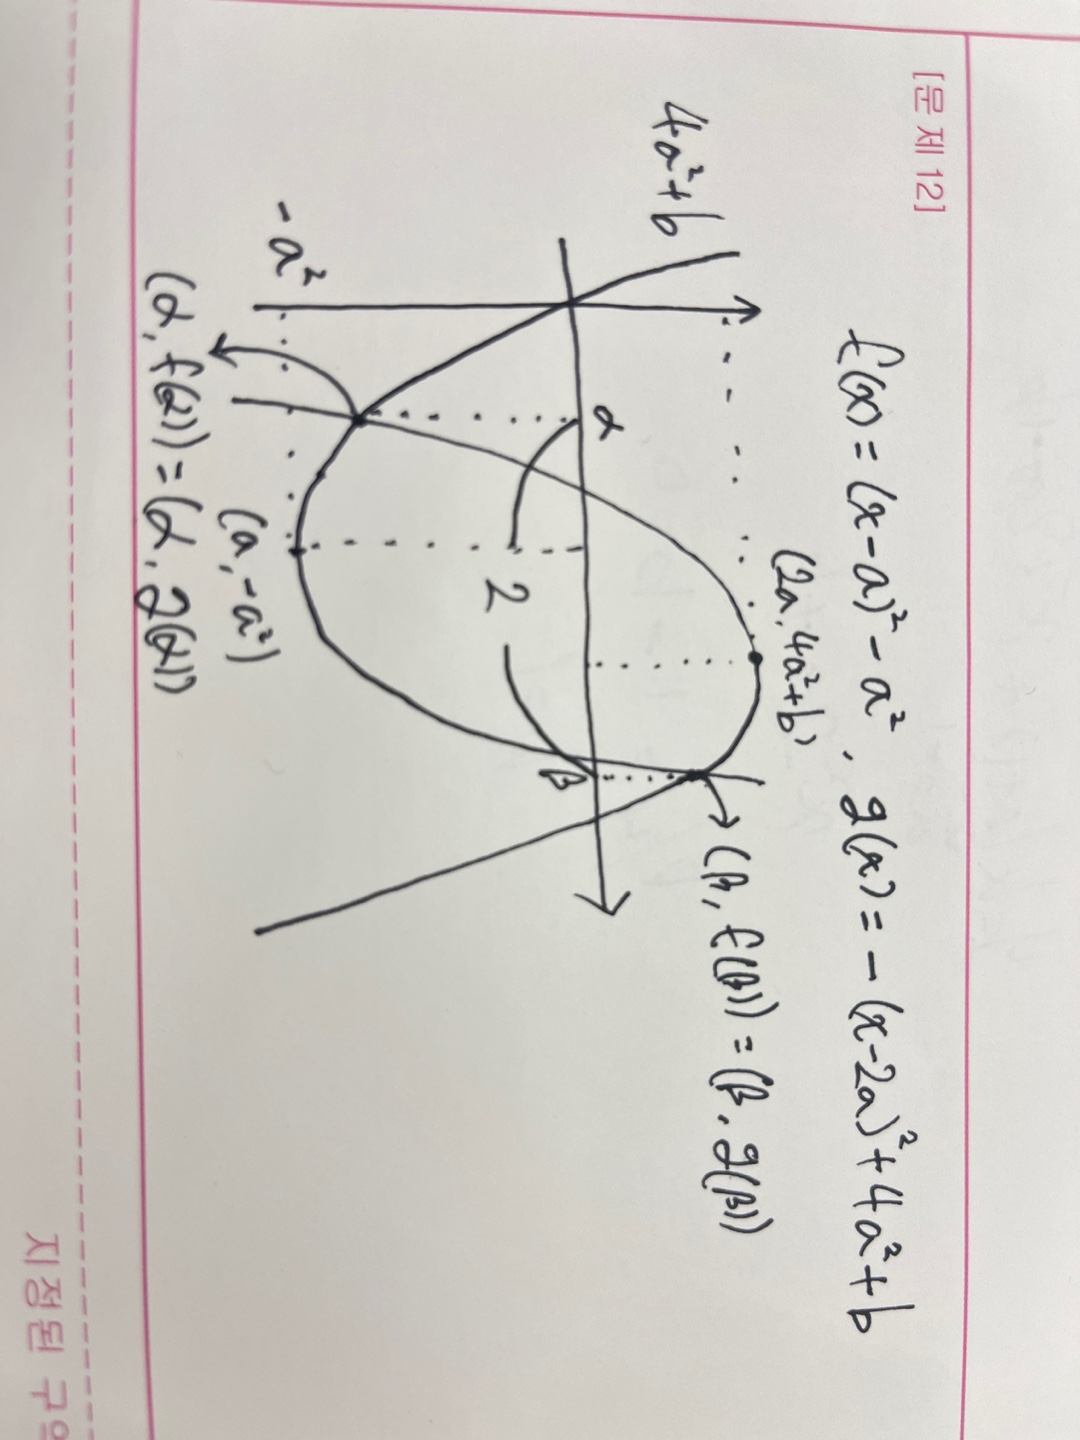 [문제 12]
f(x) = (x-a)² - a², g(x) = - (x-2a)² + 4a² + b
(2a, 4a²+b)
(β, f(β)) = (β, g(β))
4a²+b
α
β
2
-a²
(a, -a²)
(α, f(α)) = (α, g(α))
지정된 구역